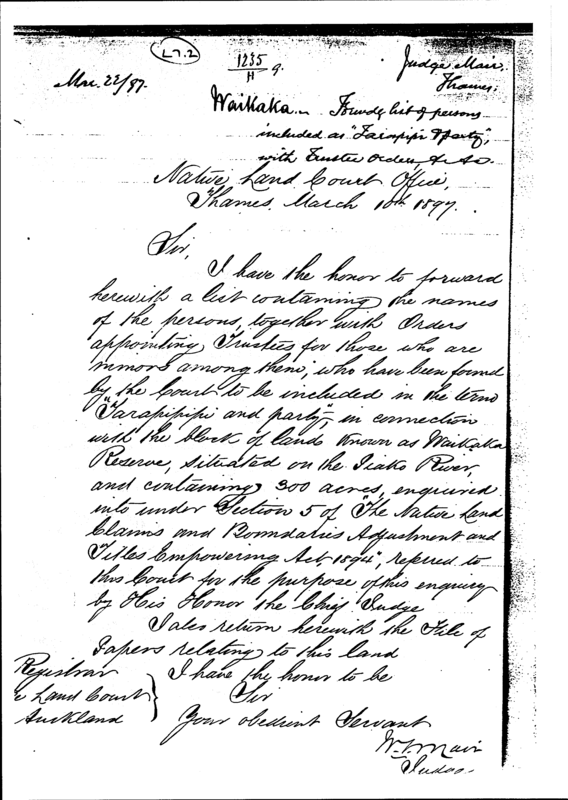 L7.2
1235
H 9.
Judge Mair.
Thames.
Mar. 22/97.
Waikaka. Forwdg list of persons
included as "Tarapipi & Party",
with Trustee Orders, &c &c.
Native Land Court Office,
Thames. March 10th 1897.
Sir,
I have the honor to forward
herewith a list containing the names
of the persons, together with Orders
appointing Trustees for those who are
minors among them, who have been found
by the Court to be included in the term
"Tarapipipi and party", in connection
with the block of land known as Waikaka
Reserve, situated on the Piako River,
and containing 300 acres, enquired
into under Section 5 of "The Native Land
Claims and Boundaries Adjustment and
Titles Empowering Act, 1894", referred to
this Court for the purpose of this enquiry
by His Honor the Chief Judge
I also return herewith the File of
Papers relating to this land
I have the honor to be
Sir
Your obedient Servant
W. G. Mair
Judge.
Registrar
e Land Court
Auckland